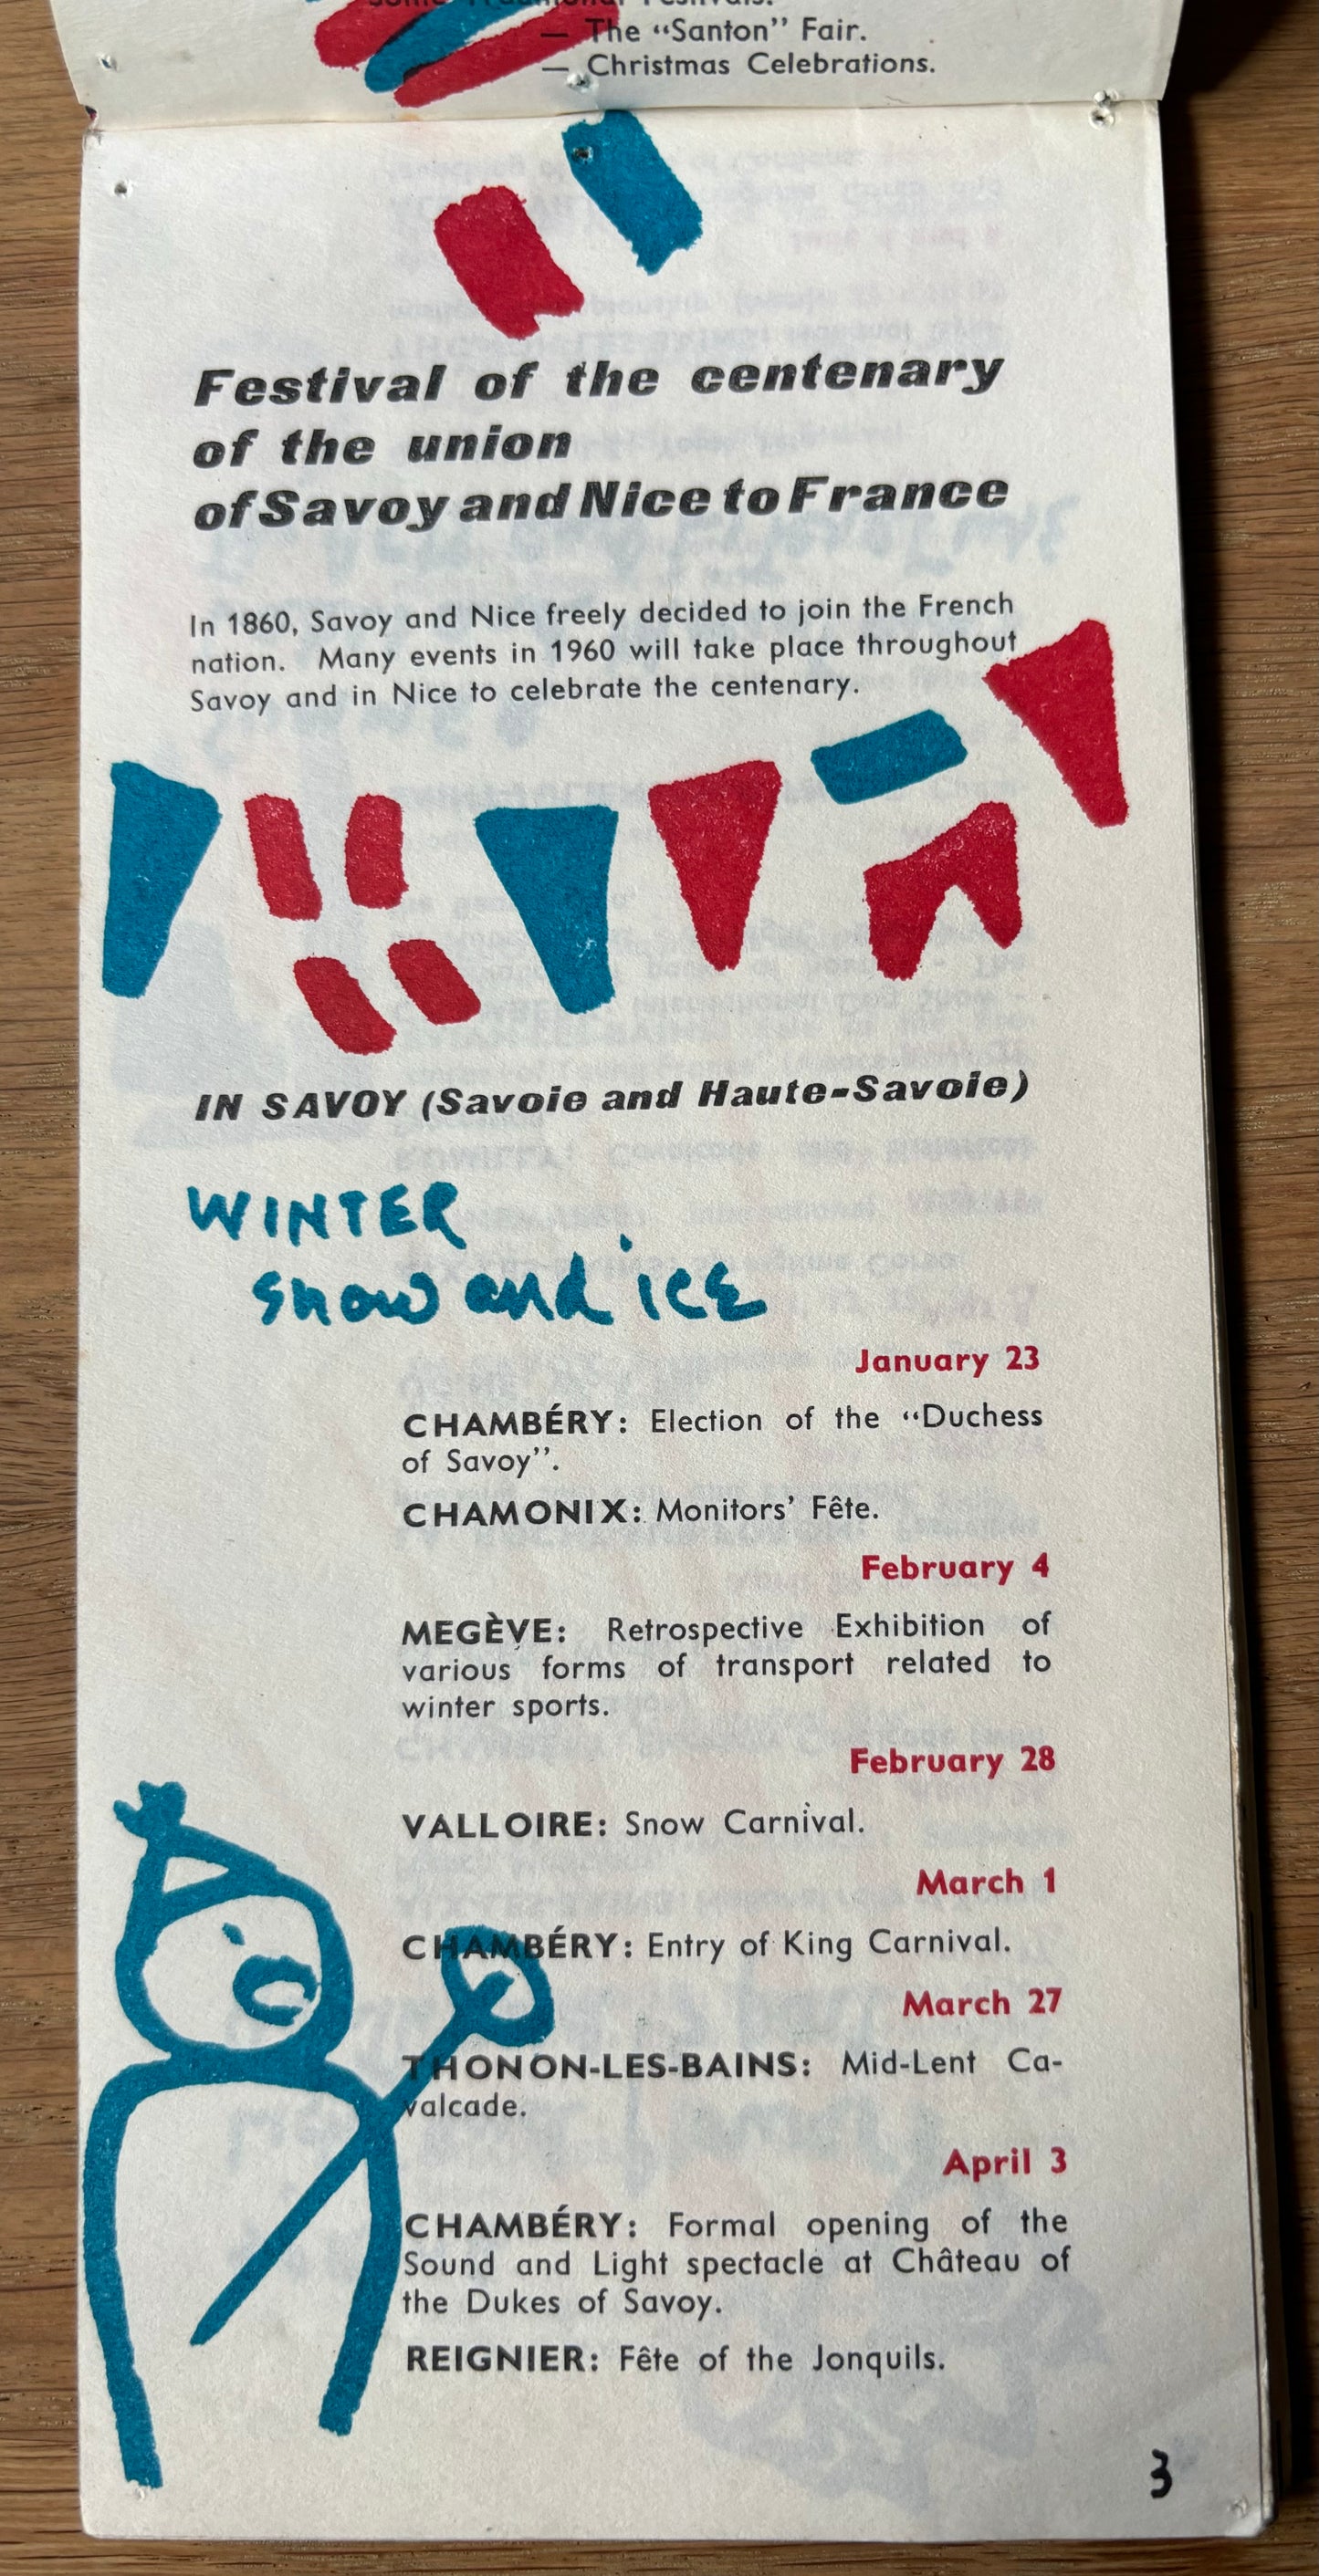 — The “Santon” Fair.
— Christmas Celebrations.
Festival of the centenary
of the union
of Savoy and Nice to France
In 1860, Savoy and Nice freely decided to join the French
nation. Many events in 1960 will take place throughout
Savoy and in Nice to celebrate the centenary.
IN SAVOY (Savoie and Haute-Savoie)
WINTER
snow and ice
January 23
CHAMBÉRY: Election of the “Duchess
of Savoy”.
CHAMONIX: Monitors’ Fête.
February 4
MEGÈVE: Retrospective Exhibition of
various forms of transport related to
winter sports.
February 28
VALLOIRE: Snow Carnival.
March 1
CHAMBÉRY: Entry of King Carnival.
March 27
THONON-LES-BAINS: Mid-Lent Ca-
valcade.
April 3
CHAMBÉRY: Formal opening of the
Sound and Light spectacle at Château of
the Dukes of Savoy.
REIGNIER: Fête of the Jonquils.
3